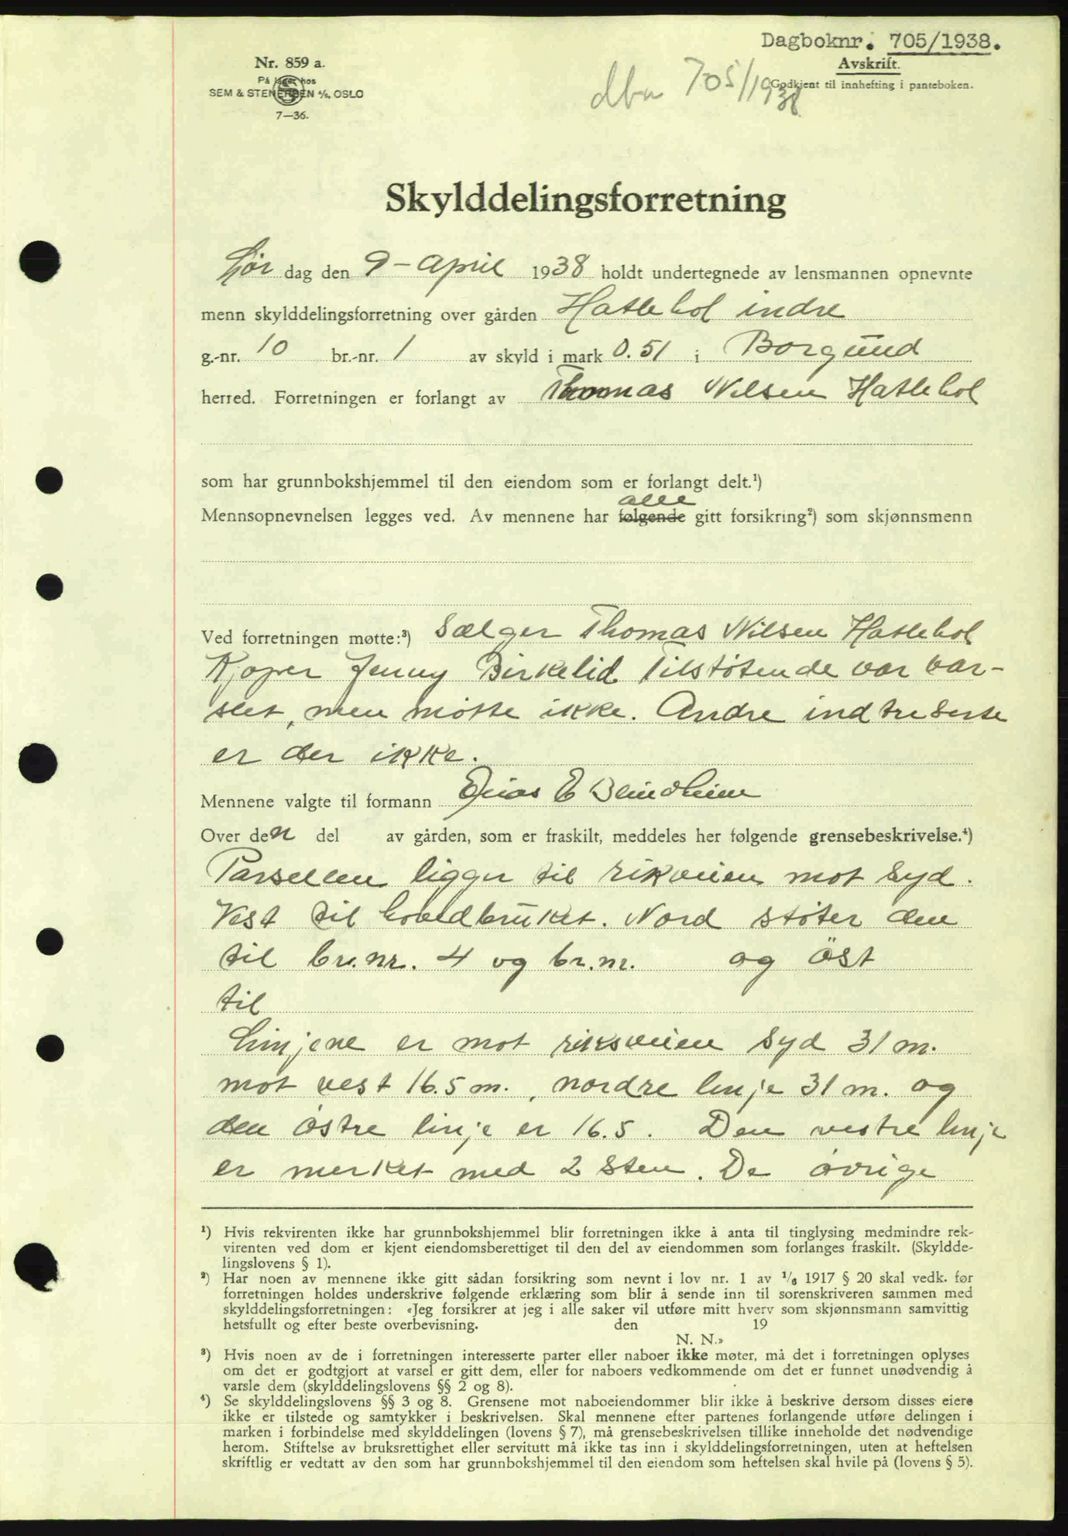 Dagboknr. 705/1938.
Avskrift.
Godkjent til innhefting i panteboken.
dbn 705/1938
Nr. 859 a.
På lager hos
SEM & STENERSEN A/S, OSLO
7—36.
Skylddelingsforretning
Lør dag den 9 - April 1938 holdt undertegnede av lensmannen opnevnte
menn skylddelingsforretning over gården Hatlehol indre
g.-nr. 10 br.-nr. 1 av skyld i mark 0.51 i Borgund
herred. Forretningen er forlangt av Thomas Nilsen Hatlehol
som har grunnbokshjemmel til den eiendom som er forlangt delt.¹)
alle
Mennsopnevnelsen legges ved. Av mennene har følgende gitt forsikring²) som skjønnsmenn
Ved forretningen møtte:³) Sælger Thomas Nilsen Hatlehol
Kjøper Jenny Birkelid Tilstøtende var var-
slet, men møtte ikke. Andre indtreserte
er der ikke.
Mennene valgte til formann E Blindheim
Over den del av gården, som er fraskilt, meddeles her følgende grensebeskrivelse.⁴)
Parsellen ligger til riksveien mot Syd.
Vest til hovedbruket. Nord støter den
til br.nr. 4 og br.nr. og öst
til
Linjene er mot riksveien Syd 31 m.
mot vest 16.5 m., nordre linje 31 m. og
den östre linje er 16.5. Den vestre linje
er merket med 2 Sten. De övrige
¹) Hvis rekvirenten ikke har grunnbokshjemmel blir forretningen ikke å anta til tinglysing medmindre rek-
virenten ved dom er kjent eiendomsberettiget til den del av eiendommen som forlanges fraskilt. (Skyldde-
lingslovens § 1).
²) Har noen av mennene ikke gitt sådan forsikring som nevnt i lov nr. 1 av 1/6 1917 § 20 skal vedk. før
forretningen holdes underskrive følgende erklæring som blir å sende inn til sorenskriveren sammen med
skylddelingsforretningen: «Jeg forsikrer at jeg i alle saker vil utføre mitt hverv som skjønnsmann samvittig
hetsfullt og efter beste overbevisning. den 19
N. N.»
³) Hvis noen av de i forretningen interesserte parter eller naboer ikke møter, må det i forretningen oplyses
om det er godtgjort at varsel er gitt dem, eller for naboers vedkommende om det er funnet unødvendig å
varsle dem (skylddelingslovens §§ 2 og 8).
⁴) Se skylddelingslovens §§ 3 og 8. Grensene mot naboeiendommer blir ikke å beskrive dersom disses eiere
ikke er tilstede og samtykker i beskrivelsen. Skal mennene efter partenes forlangende utføre delingen i
marken i forbindelse med skylddelingen (lovens § 7), må grensebeskrivelsen tillike inneholde det nødvendige
herom. Stiftelse av bruksrettighet eller servitutt må ikke tas inn i skylddelingsforretningen, uten at heftelsen
skriftlig er vedtatt av den som har grunnbokshjemmel til den eiendom som heftelsen skal hvile på (lovens § 5).